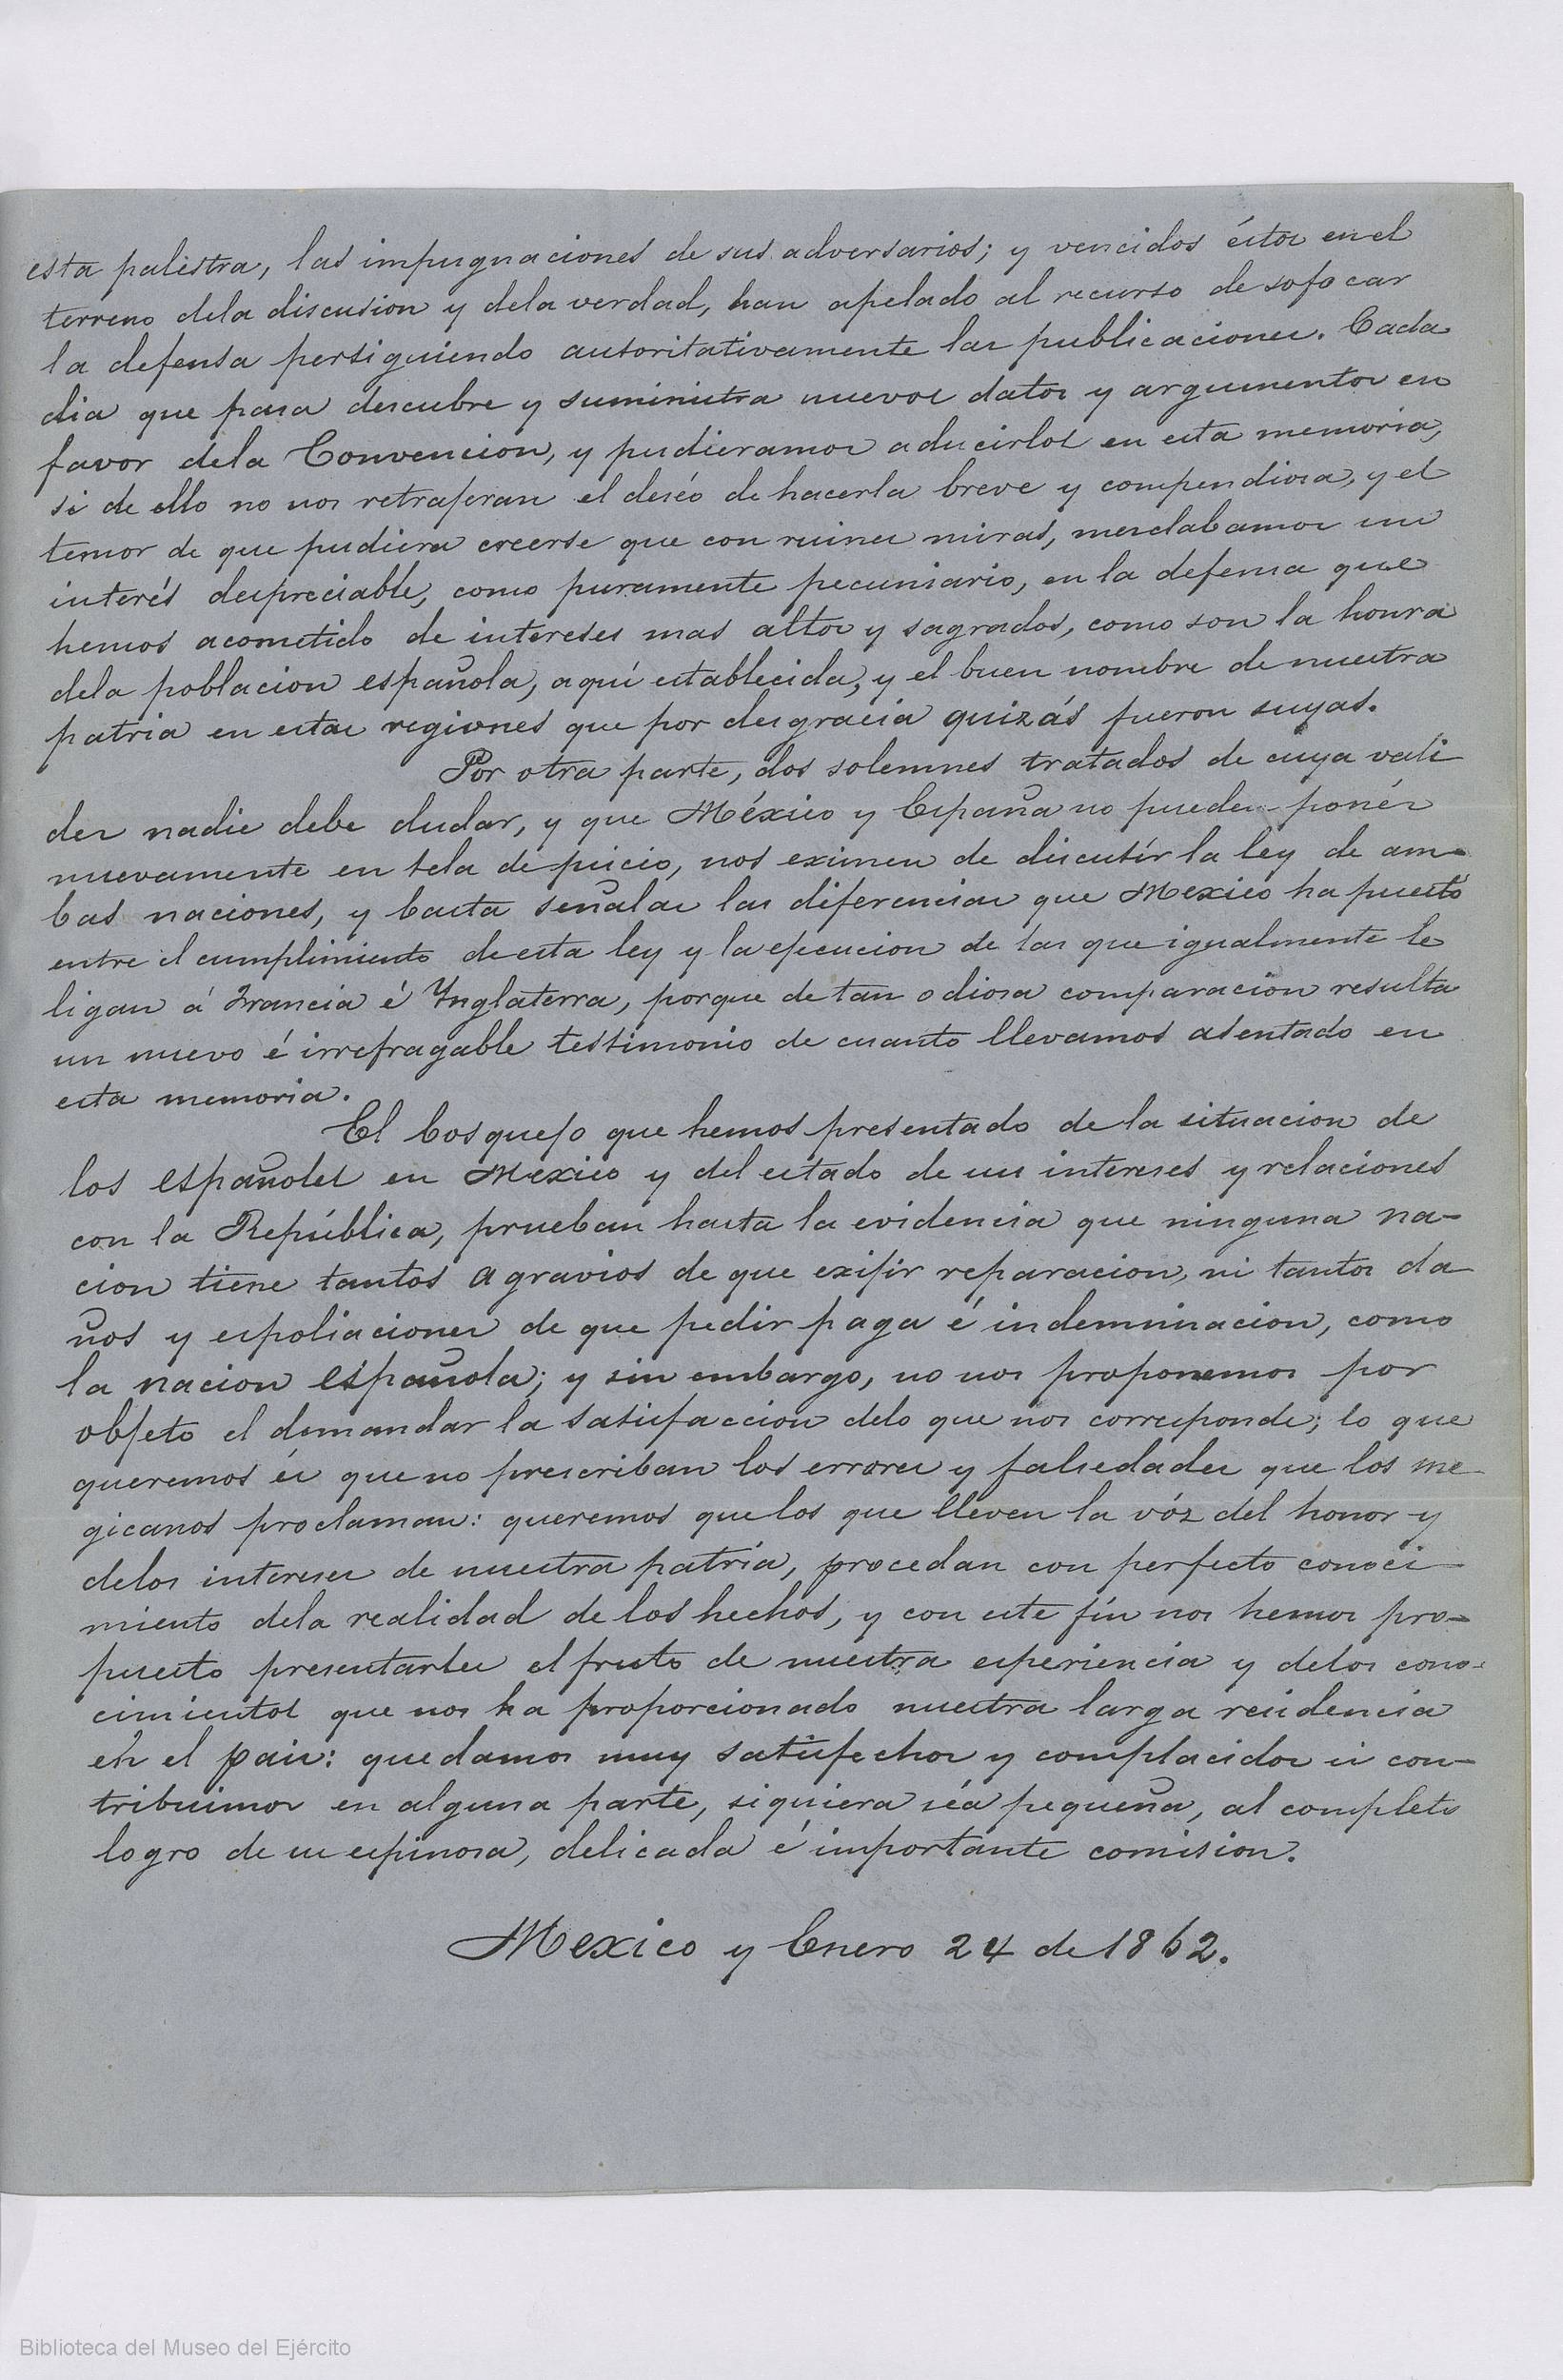 esta palestra, las impugnaciones de sus adversarios; y vencidos éstos en el
terreno dela discusion y dela verdad, han apelado al recurso de sofocar
la defensa persiguiendo autoritativamente las publicaciones. Cada
dia que pasa descubre y suministra nuevos datos y argumentos en
favor déla Convencion, y pudieramos aducirlos en esta memoria,
si de ello no nos retrajeran el deséo de hacerla breve y compendiosa, y el
temor de que pudiera creerse que con ruines miras, mesclabamos un
interés despreciable, como puramente pecuniario, en la defensa que
hemos acometido de intereses mas altos y sagrados, como son la honra
dela poblacion española, aquí establecida, y el buen nombre de nuestra
patria en estas regiones que por desgracia quizás fueron suyas.
Por otra parte, dos solemnes tratados de cuya vali
dez nadie debe dudar, y que México y España no pueden ponér
nuevamente en tela de juicio, nos eximen de discutír la ley de am-
bas naciones, y basta señalar las diferencias que Mexico ha puesto
entre el cumplimiento de esta ley y la ejecucion de las que igualmente le
ligan á Francia é Ynglaterra, porque de tan odiosa comparacion resulta
un nuevo é irrefragable testimonio de cuanto llevamos asentado en
esta memoria.
El bosquejo que hemos presentado de la situacion de
los españoles en Mexico y del estado de sus intereses y relaciones
con la República, prueban hasta la evidencia que ninguna na-
cion tiene tantos agravios de que exijir reparacion, ni tantos da
ños y espoliaciones de que pedir paga é indemnisacion, como
la nacion española; y sin embargo, no nos proponemos por
objeto el demandar la satisfaccion delo que nos corresponde; lo que
queremos és que no prescriban los errores y falsedades que los me
gicanos proclaman: queremos que los que lleven la vóz del honor y
delos intereses de nuestra patria, procedan con perfecto conoci
miento dela realidad de los hechos, y con este fín nos hemos pro-
puesto presentarles el fruto de nuestra esperiencia y delos cono-
cimientos que nos ha proporcionado nuestra larga residencia
en el pais: quedamos muy satisfechos y complacidos si con-
tribuimos en alguna parte, siquiera séa pequeña, al completo
logro de su espinosa, delicada é importante comision.
Mexico y Enero 24 de 1862.
Biblioteca del Museo del Ejército